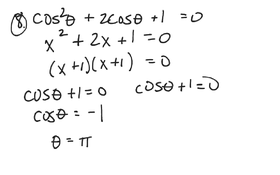 8. cos²θ + 2cosθ + 1 = 0
x² + 2x + 1 = 0
(x+1)(x+1) = 0
cosθ + 1 = 0 cosθ + 1 = 0
cosθ = -1
θ = π